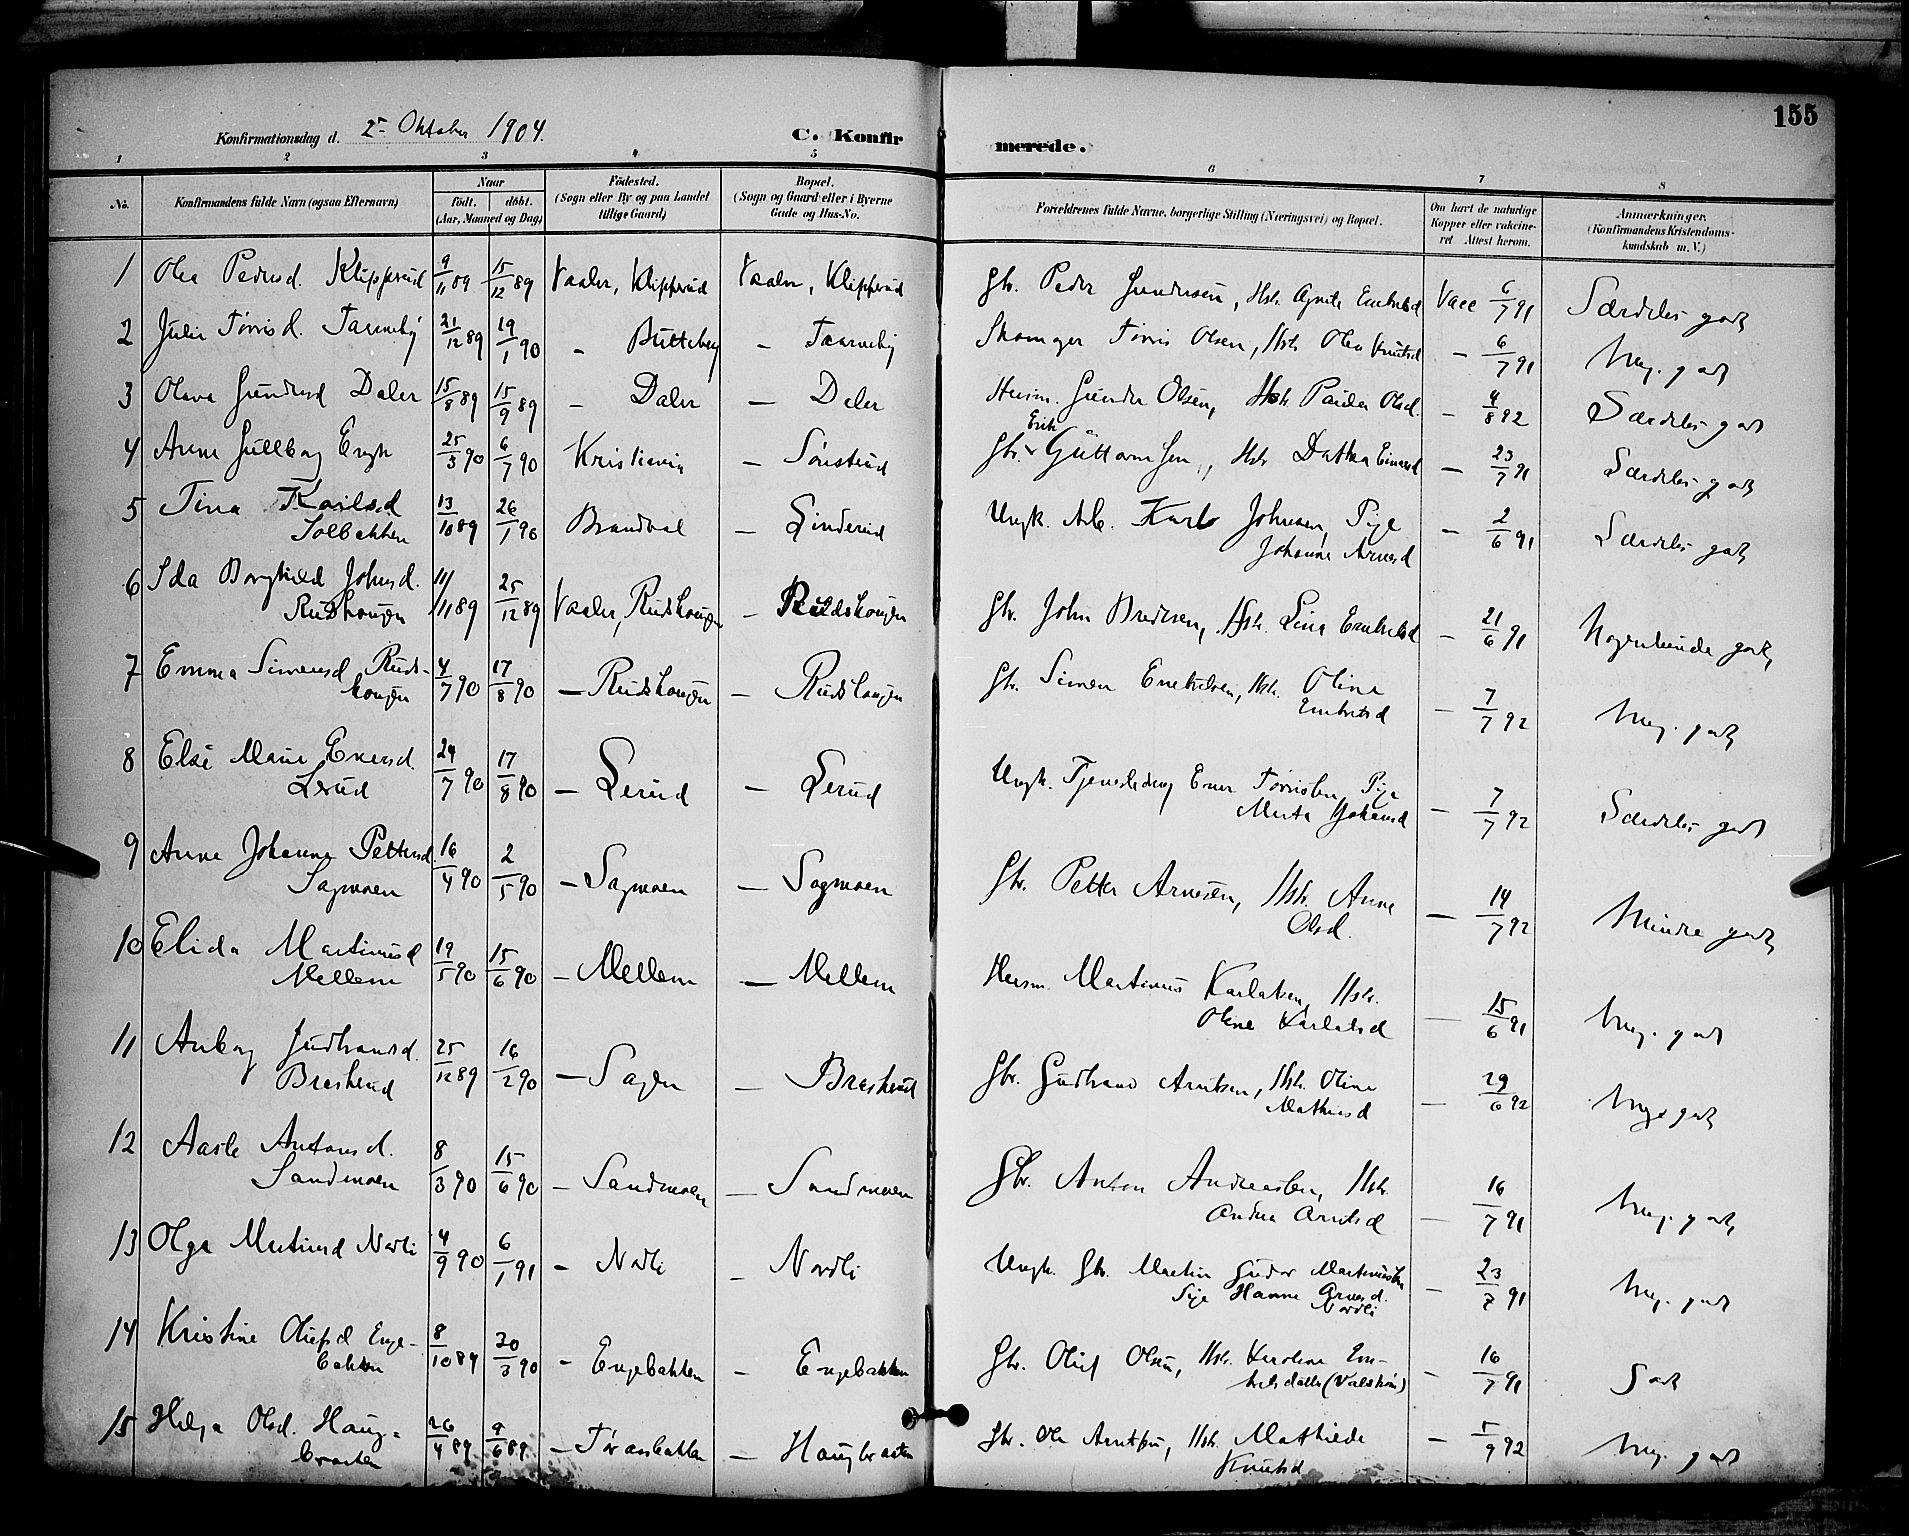 155
Konfirmationsdag d. 2 Oktober 1904.
C. Konfir merede.
1 2 3 4 5 6 7 8
No. Konfirmandens fulde Navn (ogsaa Efternavn) Naar födt. döbt. (Aar, Maaned og Dag) Födested. (Sogn eller By og paa Landet tillige Gaard) Bopæl. (Sogn og Gaard eller i Byerne Gade og Hus-No. Forældrenes fulde Navne, borgerlige Stilling (Næringsvei) og Bopæl. Om havt de naturlige Kopper eller vakcineret Attest herom. Anmærkninger. (Konfirmandens Kristendomskundskab m. V.)
1 Olea Pedersd. Klipperud 9/11 89 15/12 89 Vaaler, Klipperud Vaaler, Klipperud Gbr. Peder Gundersen, Hstr. Agnete Embretsd Vacc 6/7 91 Særdeles godt
2 Julie Tørrisd. Taarneby 21/12 89 19/1 90 - Butteberg - Taarneby Skomager Tørris Olsen, Hstr. Olea Knutsd - 6/7 91 Meg. godt
3 Olava Gundersd Daler 15/8 89 15/9 89 - Daler - Daler Husm. Gunder Olsen, Hstr. Paulea Olsd. - 4/8 92 Særdeles godt
4 Anne Gullborg Engh 25/3 90 6/7 90 Kristiania - Sønsterud Gbr. Erik Guttormsen, Hstr. Dorthea Einarsd - 23/7 91 Særdeles godt
5 Tina Karlsd
Solbakken 13/10 89 26/1 90 Brandval - Linderud Ungk. Arb. Karl Johnsen, Pige
Johanne Arnesd - 2/6 91 Særdeles godt
6 Ida Borghild Johnsd.
Rudshaugen 11/11 89 25/12 89 Vaaler, Rudshaugen - Rudshaugen Gbr. John Bredesen, Hstr. Lina Embretsd - 21/6 91 Nogenlunde godt
7 Emma Simensd Rudshaugen 4/7 90 17/8 90 - Rudshaugen - Rudshaugen Gbr. Simen Embretsen, Hstr. Oline
Embretsd - 7/7 92 Meg. godt
8 Else Marie Enersd.
Lerud 24/7 90 17/8 90 - Lerud - Lerud Ungk. Tjenestedreng Ener Tørrissen, Pige
Marta Johansd - 7/7 92 Særdeles godt
9 Anne Johanne Pettersd
Sagmoen 16/4 90 2/5 90 - Sagmoen - Sagmoen Gbr. Petter Arnesen, Hstr. Anne
Olsd. - 14/7 92 Mindre godt
10 Elida Martinusd
Mellem 19/5 90 15/6 90 - Mellem - Mellem Husm. Martinus Karlsen, Hstr.
Oline Karlsd - 15/6 91 Meg. godt
11 Anborg Gudbrandsd.
Braskerud 25/12 89 16/2 90 - Sagen - Braskerud Gbr. Gudbrand Arntsen, Hstr. Oline
Mathisd - 29/6 92 Meget godt
12 Aaste Antonsd.
Sandmoen 8/3 90 15/6 90 - Sandmoen - Sandmoen Gbr. Anton Andreassen, Hstr.
Andrea Arntsd - 16/7 91 Meg. godt
13 Olga Martinsd Nordli 4/9 90 6/1 91 - Nordli - Nordli Ungk. Gbr. Martin Gudor Martinussen
Pige Hanna Arnesd.
Nordli - 23/7 91 Meg. godt
14 Kristine Olufsd Engebakken 8/10 89 30/3 90 - Engebakken - Engebakken Gbr. Oluf Olsen, Hstr. Karoline Embretsdatter - 16/7 91 Godt
15 Helga Olsd. Haugbraaten 26/4 89 9/6 89 - Tøraasbakken - Haugbraaten Gbr. Ole Arntsen, Hstr. Mathilde
Knutsd - 5/9 92 Meg. godt